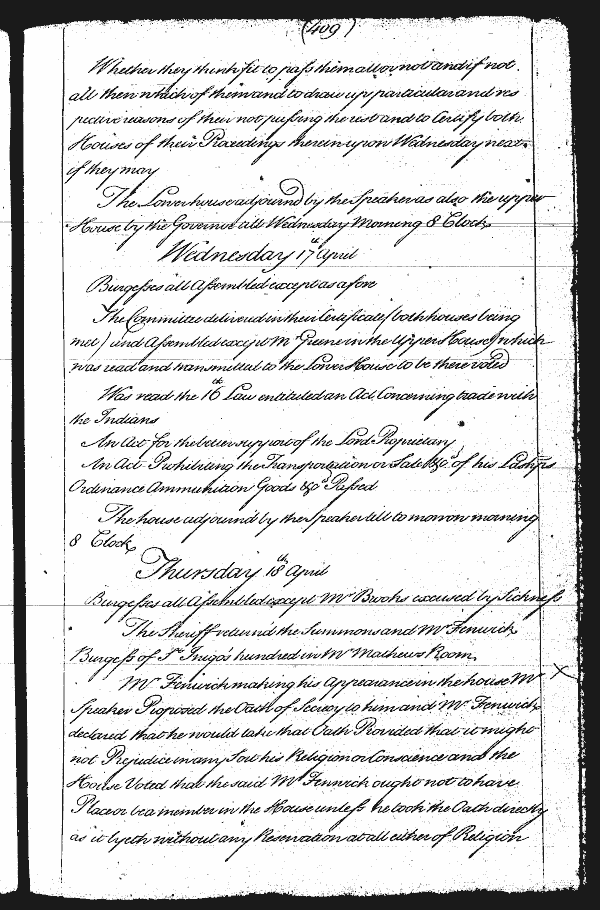 (409)
Whether they think fit to pass them all or not and if not
all then which of them and to draw up particular and res
pective reasons of their not passing the rest and to Certify both
Houses of their Proceedings therein upon Wednesday next
if they may
The Lower house adjournd by the Speaker as also the upper
House by the Governor till Wednesday Morning 8 Clock
Wednesday 17th April
Burgesses all Assembled except as afore
The Committee delivered in their Certificate (both houses being
met) and Assembled except Mr Greene in the Upper House) which
was read and transmitted to the Lower House to be there voted
Was read the 16th Law entituled an Act Concerning trade with
the Indians
An Act for the better support of the Lord Proprietary
An Act Prohibiting the Transportation or Sale &c. of his Ldships
Ordinance Ammunition Goods &ca Passed
The house adjourn'd by the Speaker till to morrow morning
8 Clock
Thursday 18th April
Burgesses all Assembled except Mr Brooks excused by Sickness
The Sheriff return'd the Summons and Mr Fenwick
Burgess of St Inigo's hundred in Mr Mathews Room
Mr Finwick making his Appearance in the house Mr
Speaker Proposed the Oath of Secresy to him and Mr Fenwick
declared that he would take that Oath Provided that it might
not Prejudice in any Sort his Religion or Conscience and the
House Voted that the said Mr Fenwick ought not to have
Place or be a member in the House unless he took the Oath directly
as it lyeth without any Reservation at all either of Religion